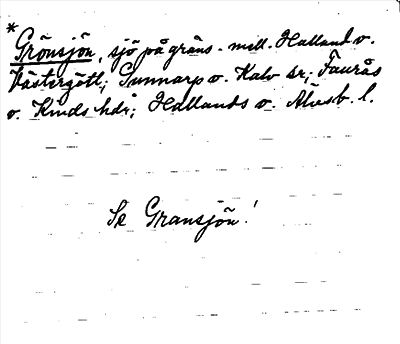 *
Grönsjön, sjö på gräns. mell. Halland o.
Västergötl; Gunnarp o. Kalv sr; Faurås
o. Kinds hdr; Hallands o. Älvsb. l.
Se Gransjön!